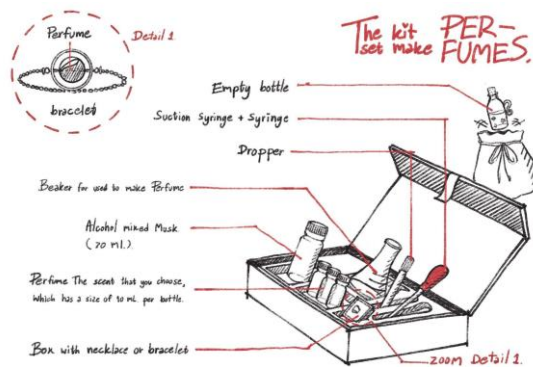 Perfume
Detail 1
bracelet
The kit
set make
PER-
FUMES.
Empty bottle
Suction syringe + Syringe
Dropper
Beaker for used to make Perfume
Alcohol mixed Musk
(20 ml.)
Perfume The scent that you choose,
which has a size of 10 ml. per bottle.
Box with necklace or bracelet
zoom Detail 1.